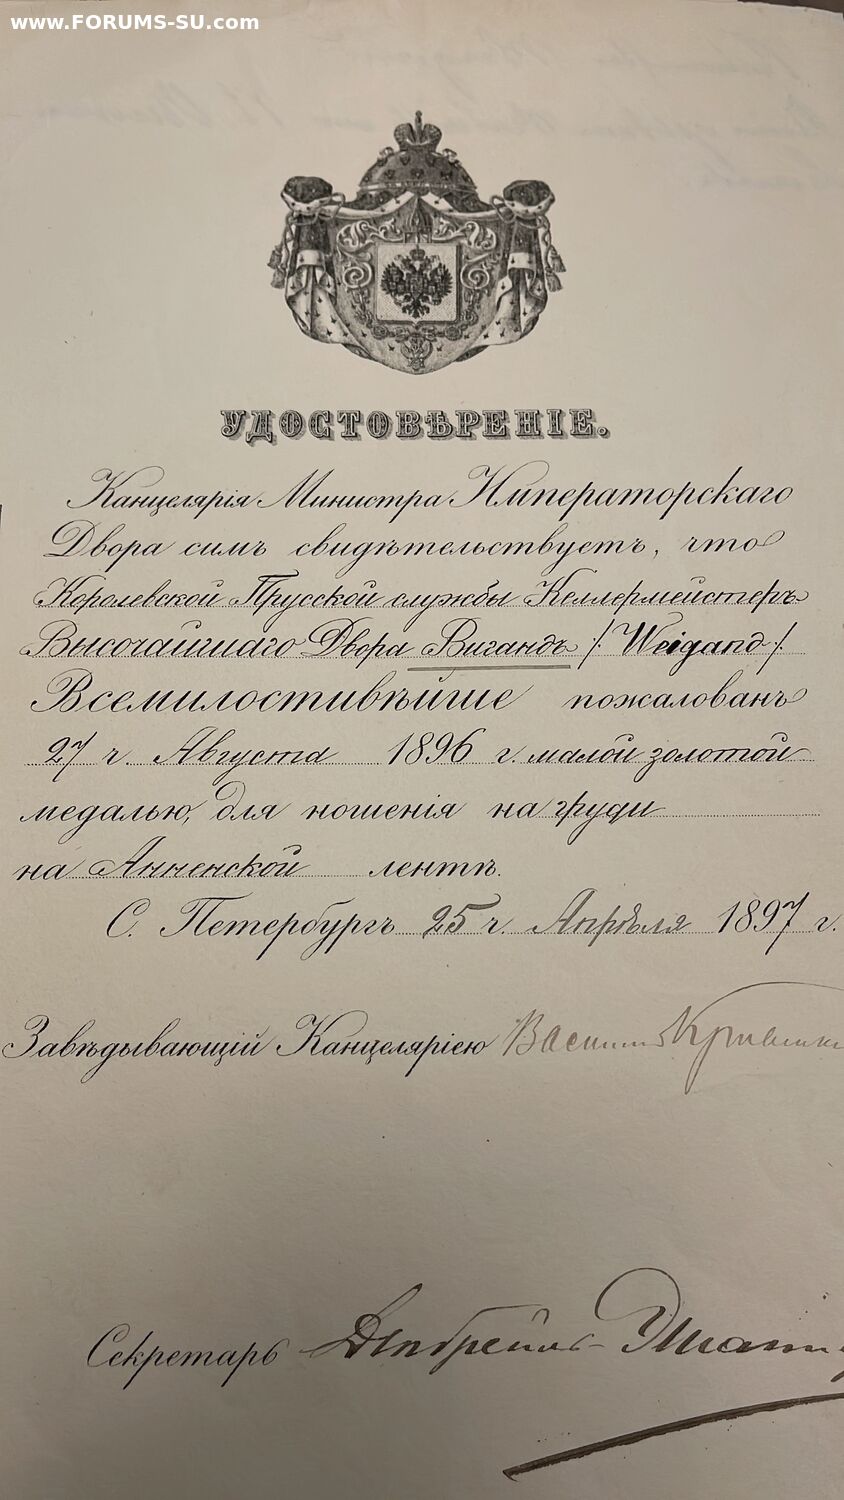 www.FORUMS-SU.com
УДОСТОВѢРЕНІЕ.
Канцелярія Министра Императорскаго
Двора симъ свидѣтельствуетъ, что
Королевской Прусской службы Келлермейстеръ
Высочайшаго Двора Вигандъ /: Weigand :/
Всемилостивѣйше пожалованъ
27 ч. Августа 1896 г. малой золотой
медалью, для ношенія на груди
на Анненской лентѣ.
С. Петербургъ 25 ч. Апрѣля 1897 г.
Завѣдывающій Канцеляріею Василій
Секретарь